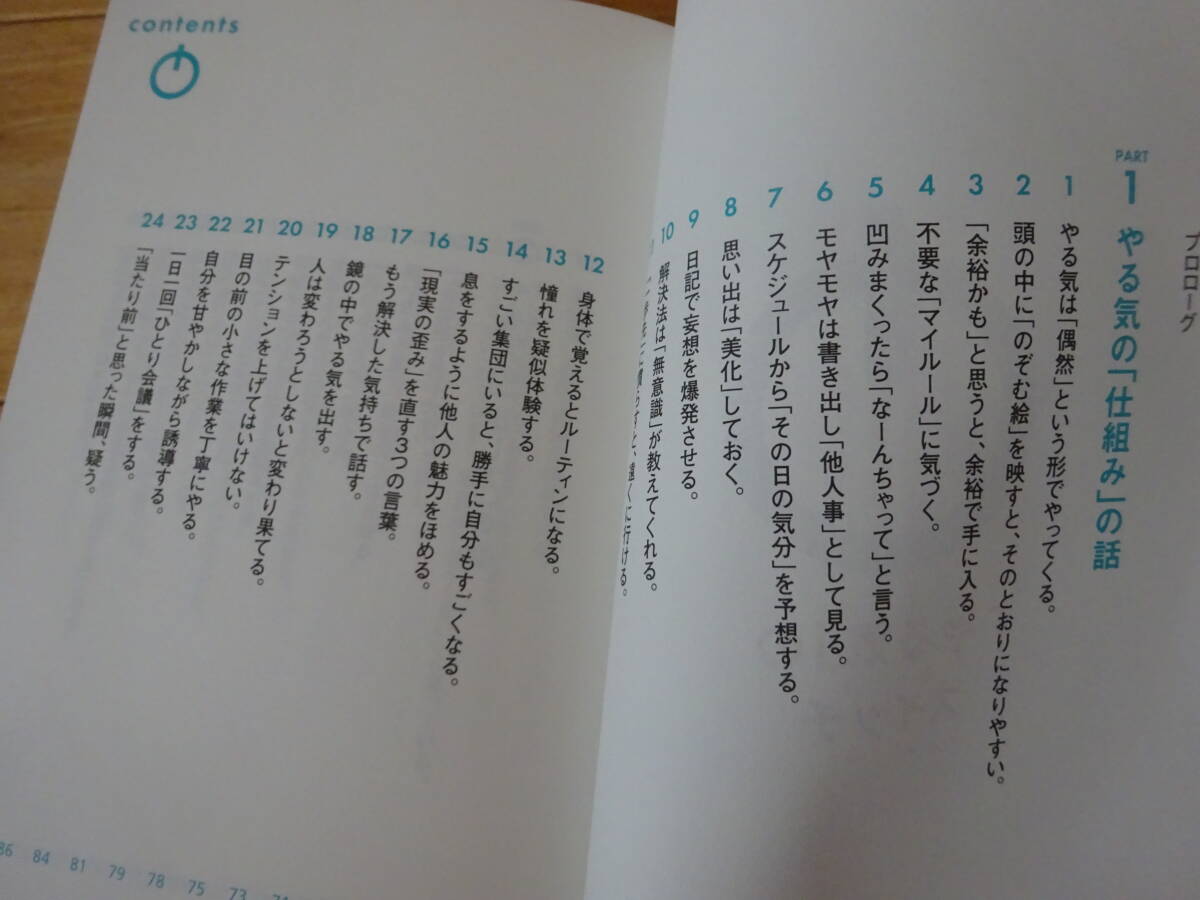 contents
プロローグ
PART
1 やる気の「仕組み」の話
1 やる気は「偶然」という形でやってくる。
2 頭の中に「のぞむ絵」を映すと、そのとおりになりやすい。
3 「余裕かも」と思うと、余裕で手に入る。
4 不要な「マイルール」に気づく。
5 凹みまくったら「なーんちゃって」と言う。
6 モヤモヤは書き出し「他人事」として見る。
7 スケジュールから「その日の気分」を予想する。
8 思い出は「美化」しておく。
9 日記で妄想を爆発させる。
10 解決法は「無意識」が教えてくれる。
すと、遠くに行ける。
12 身体で覚えるとルーティンになる。
13 憧れを疑似体験する。
14 すごい集団にいると、勝手に自分もすごくなる。
15 息をするように他人の魅力をほめる。
16 「現実の歪み」を直す3つの言葉。
17 もう解決した気持ちで話す。
18 鏡の中でやる気を出す。
19 人は変わろうとしないと変わり果てる。
20 テンションを上げてはいけない。
21 目の前の小さな作業を丁寧にやる。
22 自分を甘やかしながら誘導する。
23 一日一回「ひとり会議」をする。
24 「当たり前」と思った瞬間、疑う。
73
75
78
79
81
84
86